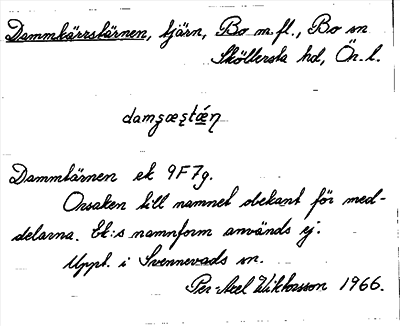 Dammkärrstärnen, tjärn, Bo m.fl., Bo sn
Sköllersta hd, Ön. l.
damʒæʂtǽ̱ɳ
Dammtärnen ek 9F7g.
Orsaken till namnet obekant för med-
delarna. Ek:s namnform används ej.
Uppt. i Svennevads sn.
Per-Axel Wiktorsson 1966.